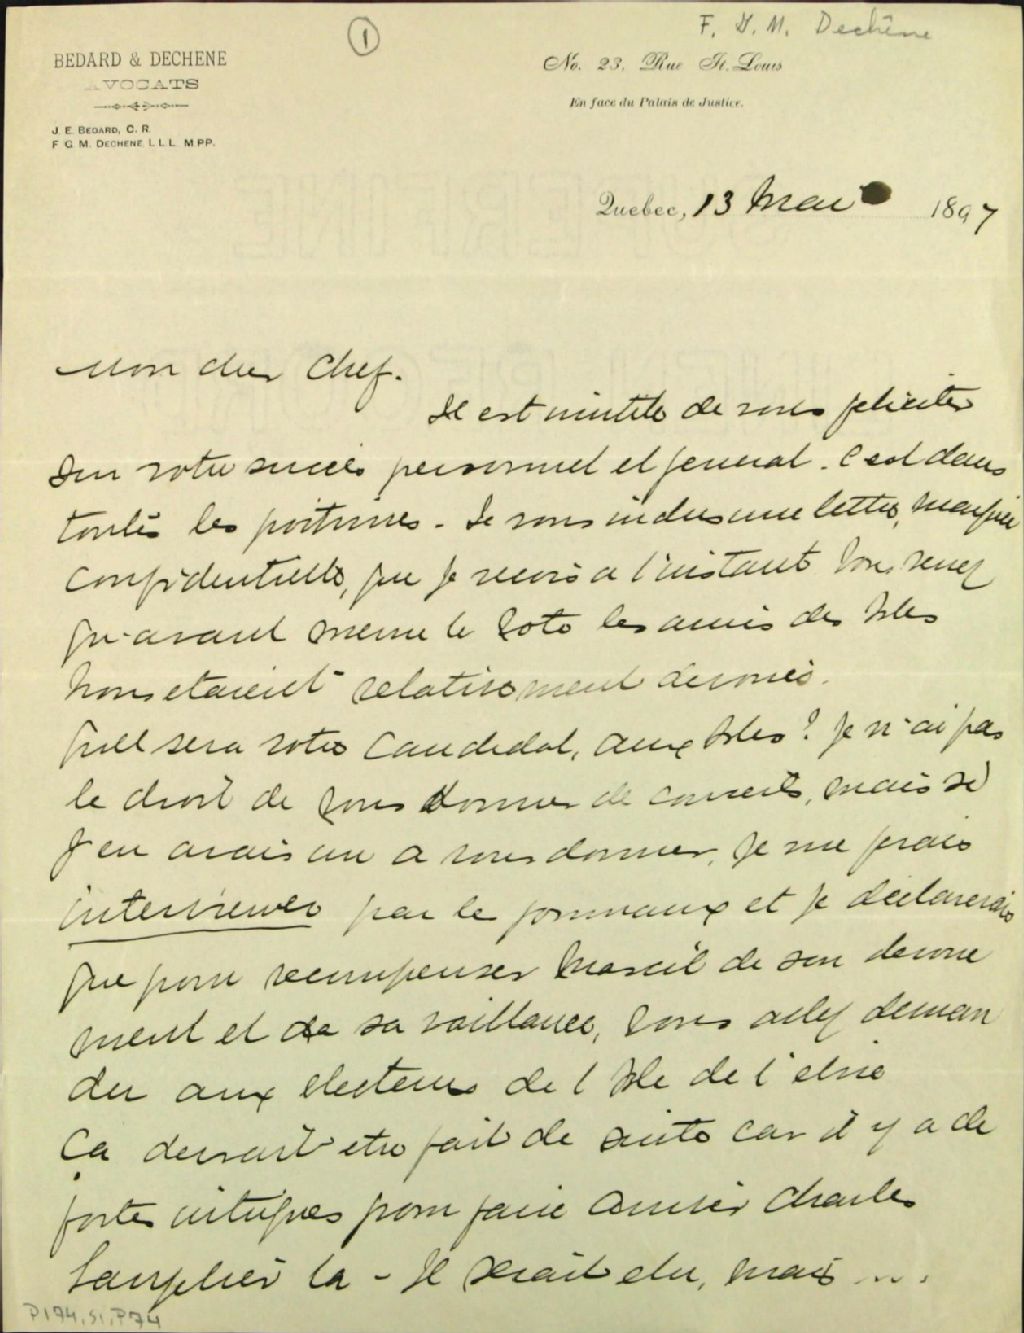 F. G. M. Dechêne
1
BEDARD & DECHENE
AVOCATS
J. E. BEDARD, C. R.
F. G. M. DECHENE, L. L. L. M.P.P.
No. 23, Rue St. Louis
En face du Palais de Justice.
Quebec, 13 Mai 1897
Mon cher Chef.
Il est inutile de vous feliciter
sur votre succès personnel et general. C'est dans
toutes les poitrines. Je vous inclus une lettre,
confidentielle, que je recois a l'instant Vous verrez
qu'avant meme le vote les amis des Isles
nous etaient relativement devoués.
Quel sera votre candidat, aux Isles? Je n'ai pas
le droit de vous donner de conseils, mais si
j'en avais un a vous donner, je me ferais
interviewer par le journaux et je déclarerais
que pour recompenser Marcil de son devoue
ment et de sa vaillance, vous allez deman
der aux electeurs de l'Isle de l'elire
Ca devrait etre fait de suite car il y a de
fortes intrigues pour faire arriver Charles
Langelier la - Il serait elu, mais ....
P174, S1, P74